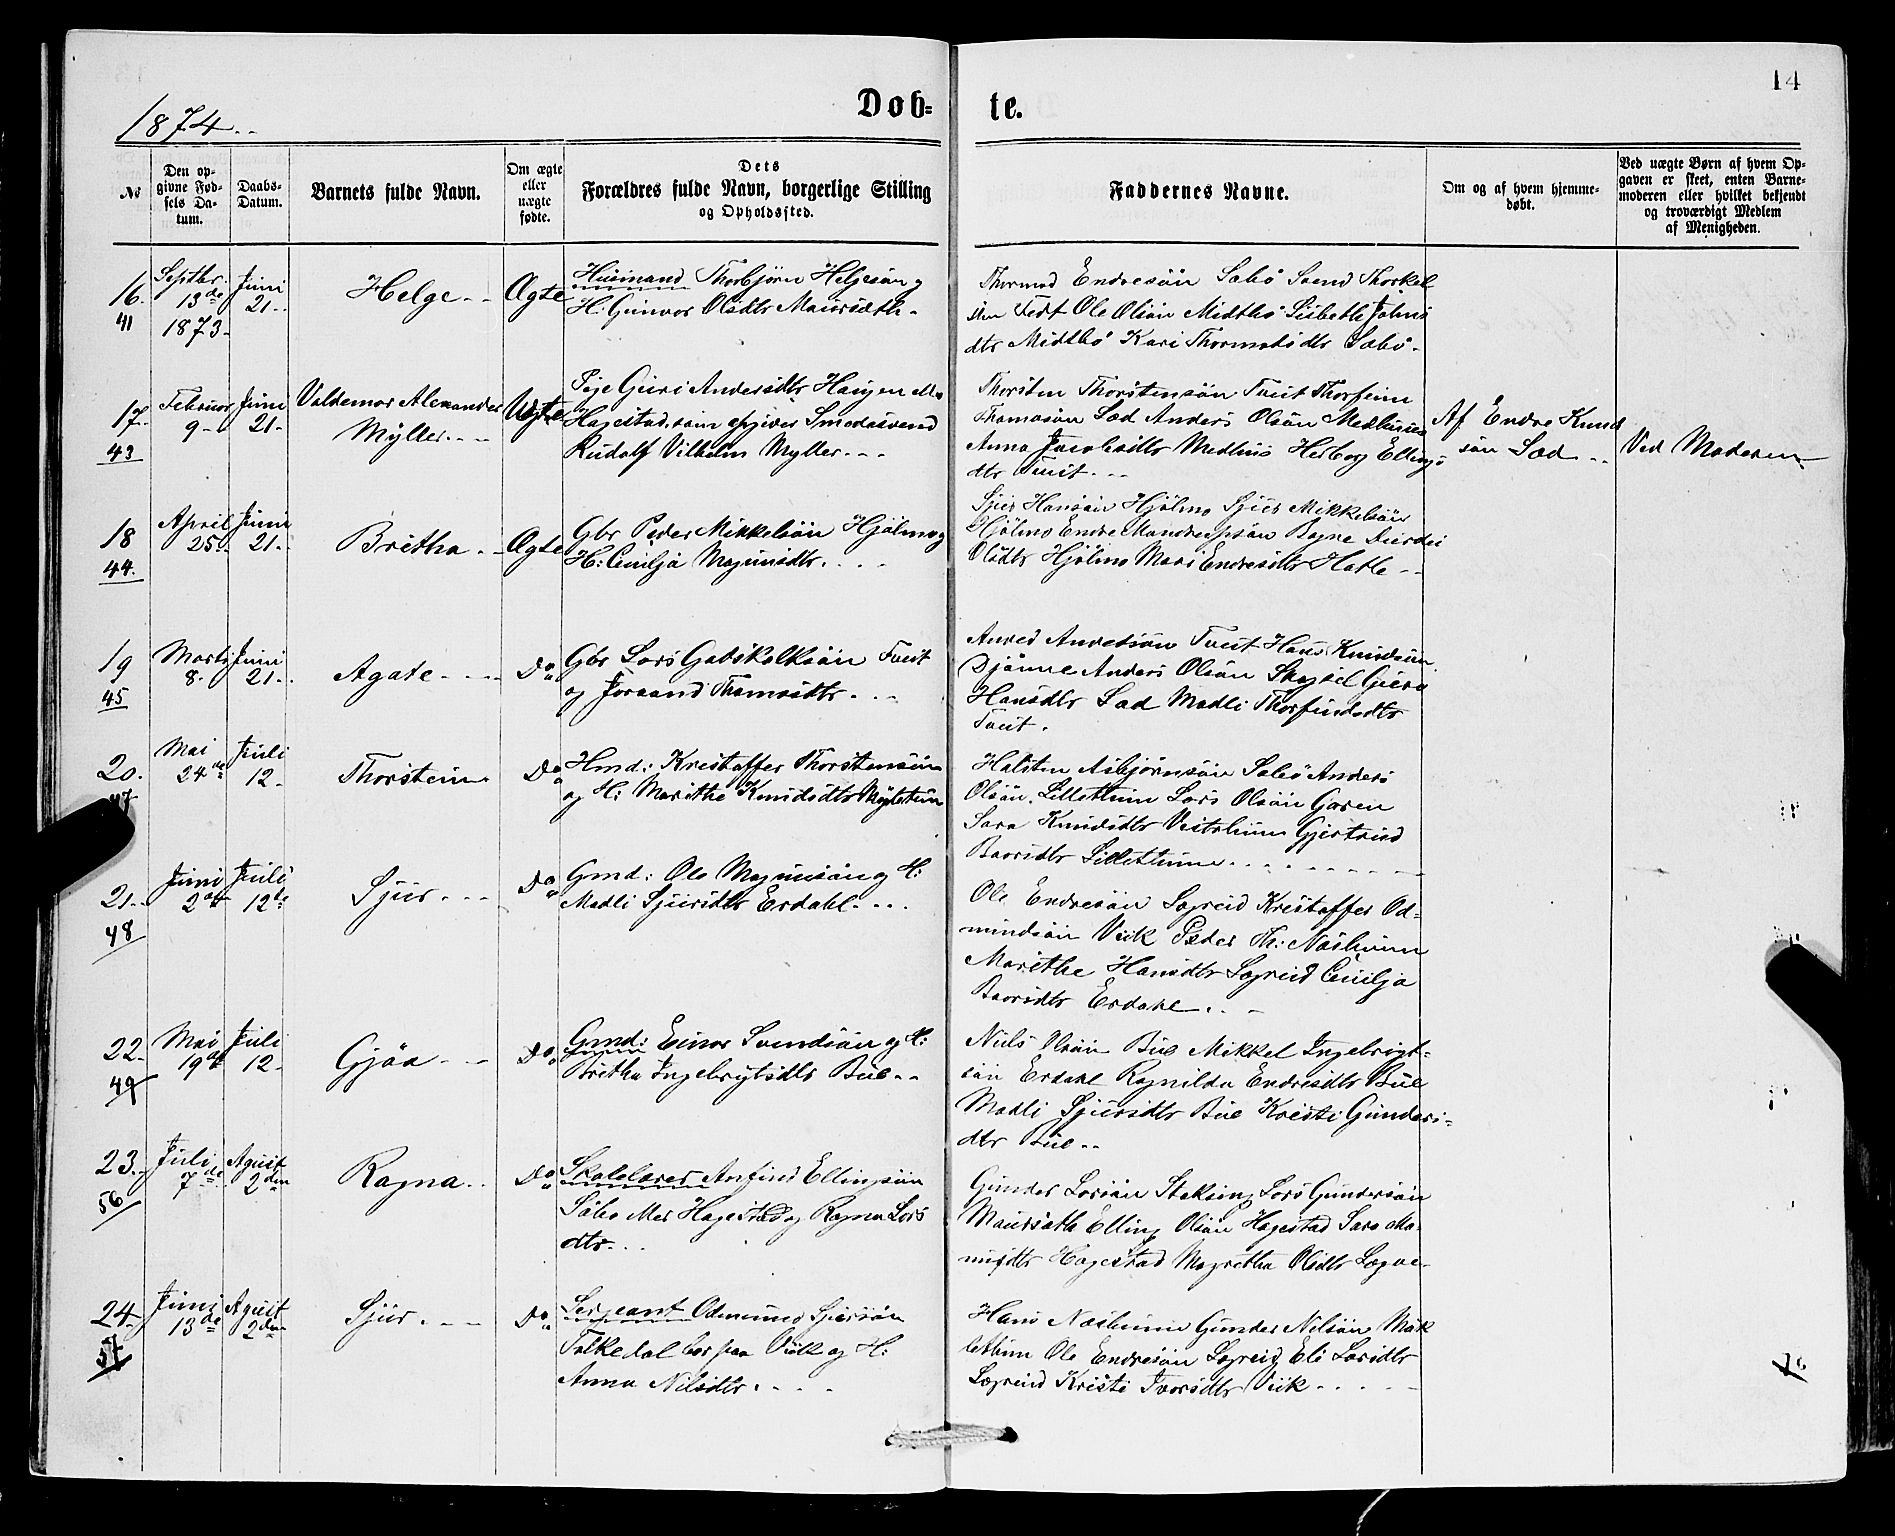 14
1874..
Døb-
te.
No
Den op-
givne Fød-
sels Da-
tum.
Daabs-
Datum.
Barnets fulde Navn.
Om ægte
eller
uægte
fødte.
Dets
Forældres fulde Navn, borgerlige Stilling
og Opholdssted.
Faddernes Navne.
Om og af hvem hjemme-
døbt.
Ved uægte Børn af hvem Op-
gaven er skeet, enten Barne-
moderen eller hvilket bekjendt
og troværdigt Medlem
af Menigheden.
16.
41
Septbr.
13de
1873-
Juni
21..
Helge..
Ægte
Huusmand Thorbjørn Helgesøn og
H: Gunvor Olsdtr Maursæth.
Thormod Endresøn Sæbø Svend Thorkel
søn Tedt Ole Olsøn Midtbø Lisbeth Johns
dtr Midtbø Kari Thormodsdtr Sæbø.
17.
43
Februar
9-
Juni
21-
Valdemar Alexander
Myller.--
Uægte
Pige Guri Andersdtr Haugen eller
Hagestad, som opgiver Smedesvend
Rudolf Vilhelm Myller.--
Thorsten Thorstensøn Tveit Thorfinn
Thomasøn Sæd Anders Olsøn Medhuus
Anna Jacobsdtr Medhus Herborg Ellings
dtr Tveit.--
Af Endre Knud
søn Sæd..
Ved Moderen
18
44.
April
25.
Juni
21..
Britha..
Ægte
Gbr Peder Mikkelsøn Hjølmo og
H: Cecilja Magnusdtr. . . .
Sjur Hansøn Hjølmo Sjur Mikkelsøn
Hjølmo Endre Mandrupsøn Bagne
Olsdtr Hjølmo Mari Endresdtr Hatle--
19
45
Marts
8.
Juni
21..
Agate----
Do
Gbr Lars Gotskalksøn Tveit
og Joraand Thomasdtr. . .
Anved Anvedsøn Tveit Hans Knudsøn
Djønne Anders Olsøn Skejsel Guro
Hansdtr Sæd Madli Thorfindsdtr
Tveit.
20.
47
Mai
24de
Juli
12-
Thorstein
Do
Hmd: Kristaffer Thorstensøn
og H: Marithe Knudsdtr Mygletun
Halsten Asbjørnsøn Sæbø Anders
Olsøn Lilletun Lars Olsøn Garen
Sara Knudsdtr Vestrheim Gjertrud
Baarsdtr Lilletun. . . . . . .
21..
48
Juni
2den
Juli
12te
Sjur.--
Do
Gmd: Ole Magnusøn og H:
Madli Sjursdtr Erdahl. . .
Ole Endresøn Lægreid Kristaffer Od-
mundsøn Viik Peder Th: Næsheim
Marithe Hansdtr Lægreid Cecilja
Baarsdtr Erdahl. . -
22-
49
Mai
19de
Juli
12-
Gjøa--
Do
Gmd: Einar Svendsøn og H:
Britha Ingebrigtsdtr Bue..
Niels Olsøn Bue Mikkel Ingebrigt-
søn Erdahl Ragnilda Endresdtr Bue
Madli Sjursdtr Bue Kristi Gunders-
dtr Bue..
23.
56
Juli
7de
Agust
2den
Ragna..
Do
Skolelærer Anfind Ellingsøn
Sæbø Mer Hagestad og Ragna Lars
dtr. . .
Gunder Larsøn Steksing Lars Gundersøn
Maursæth Elling Olsøn Hagestad Sara Ma-
nusdtr Hagestad Magretha Olsdtr Lægre-
24-
57
Juni
13de
Agust
2den
Sjur.--
Do
Sergeant Odmund Sjursøn
Folkedal bor paa Viik og H:
Anna Nilsdtr. . . .
Hans Næsheim Gunder Nilsøn Møk
lethun Ole Endresøn Lægreid Eli Larsdtr
Lægreid Kristi Ivarsdtr Viik. . . .